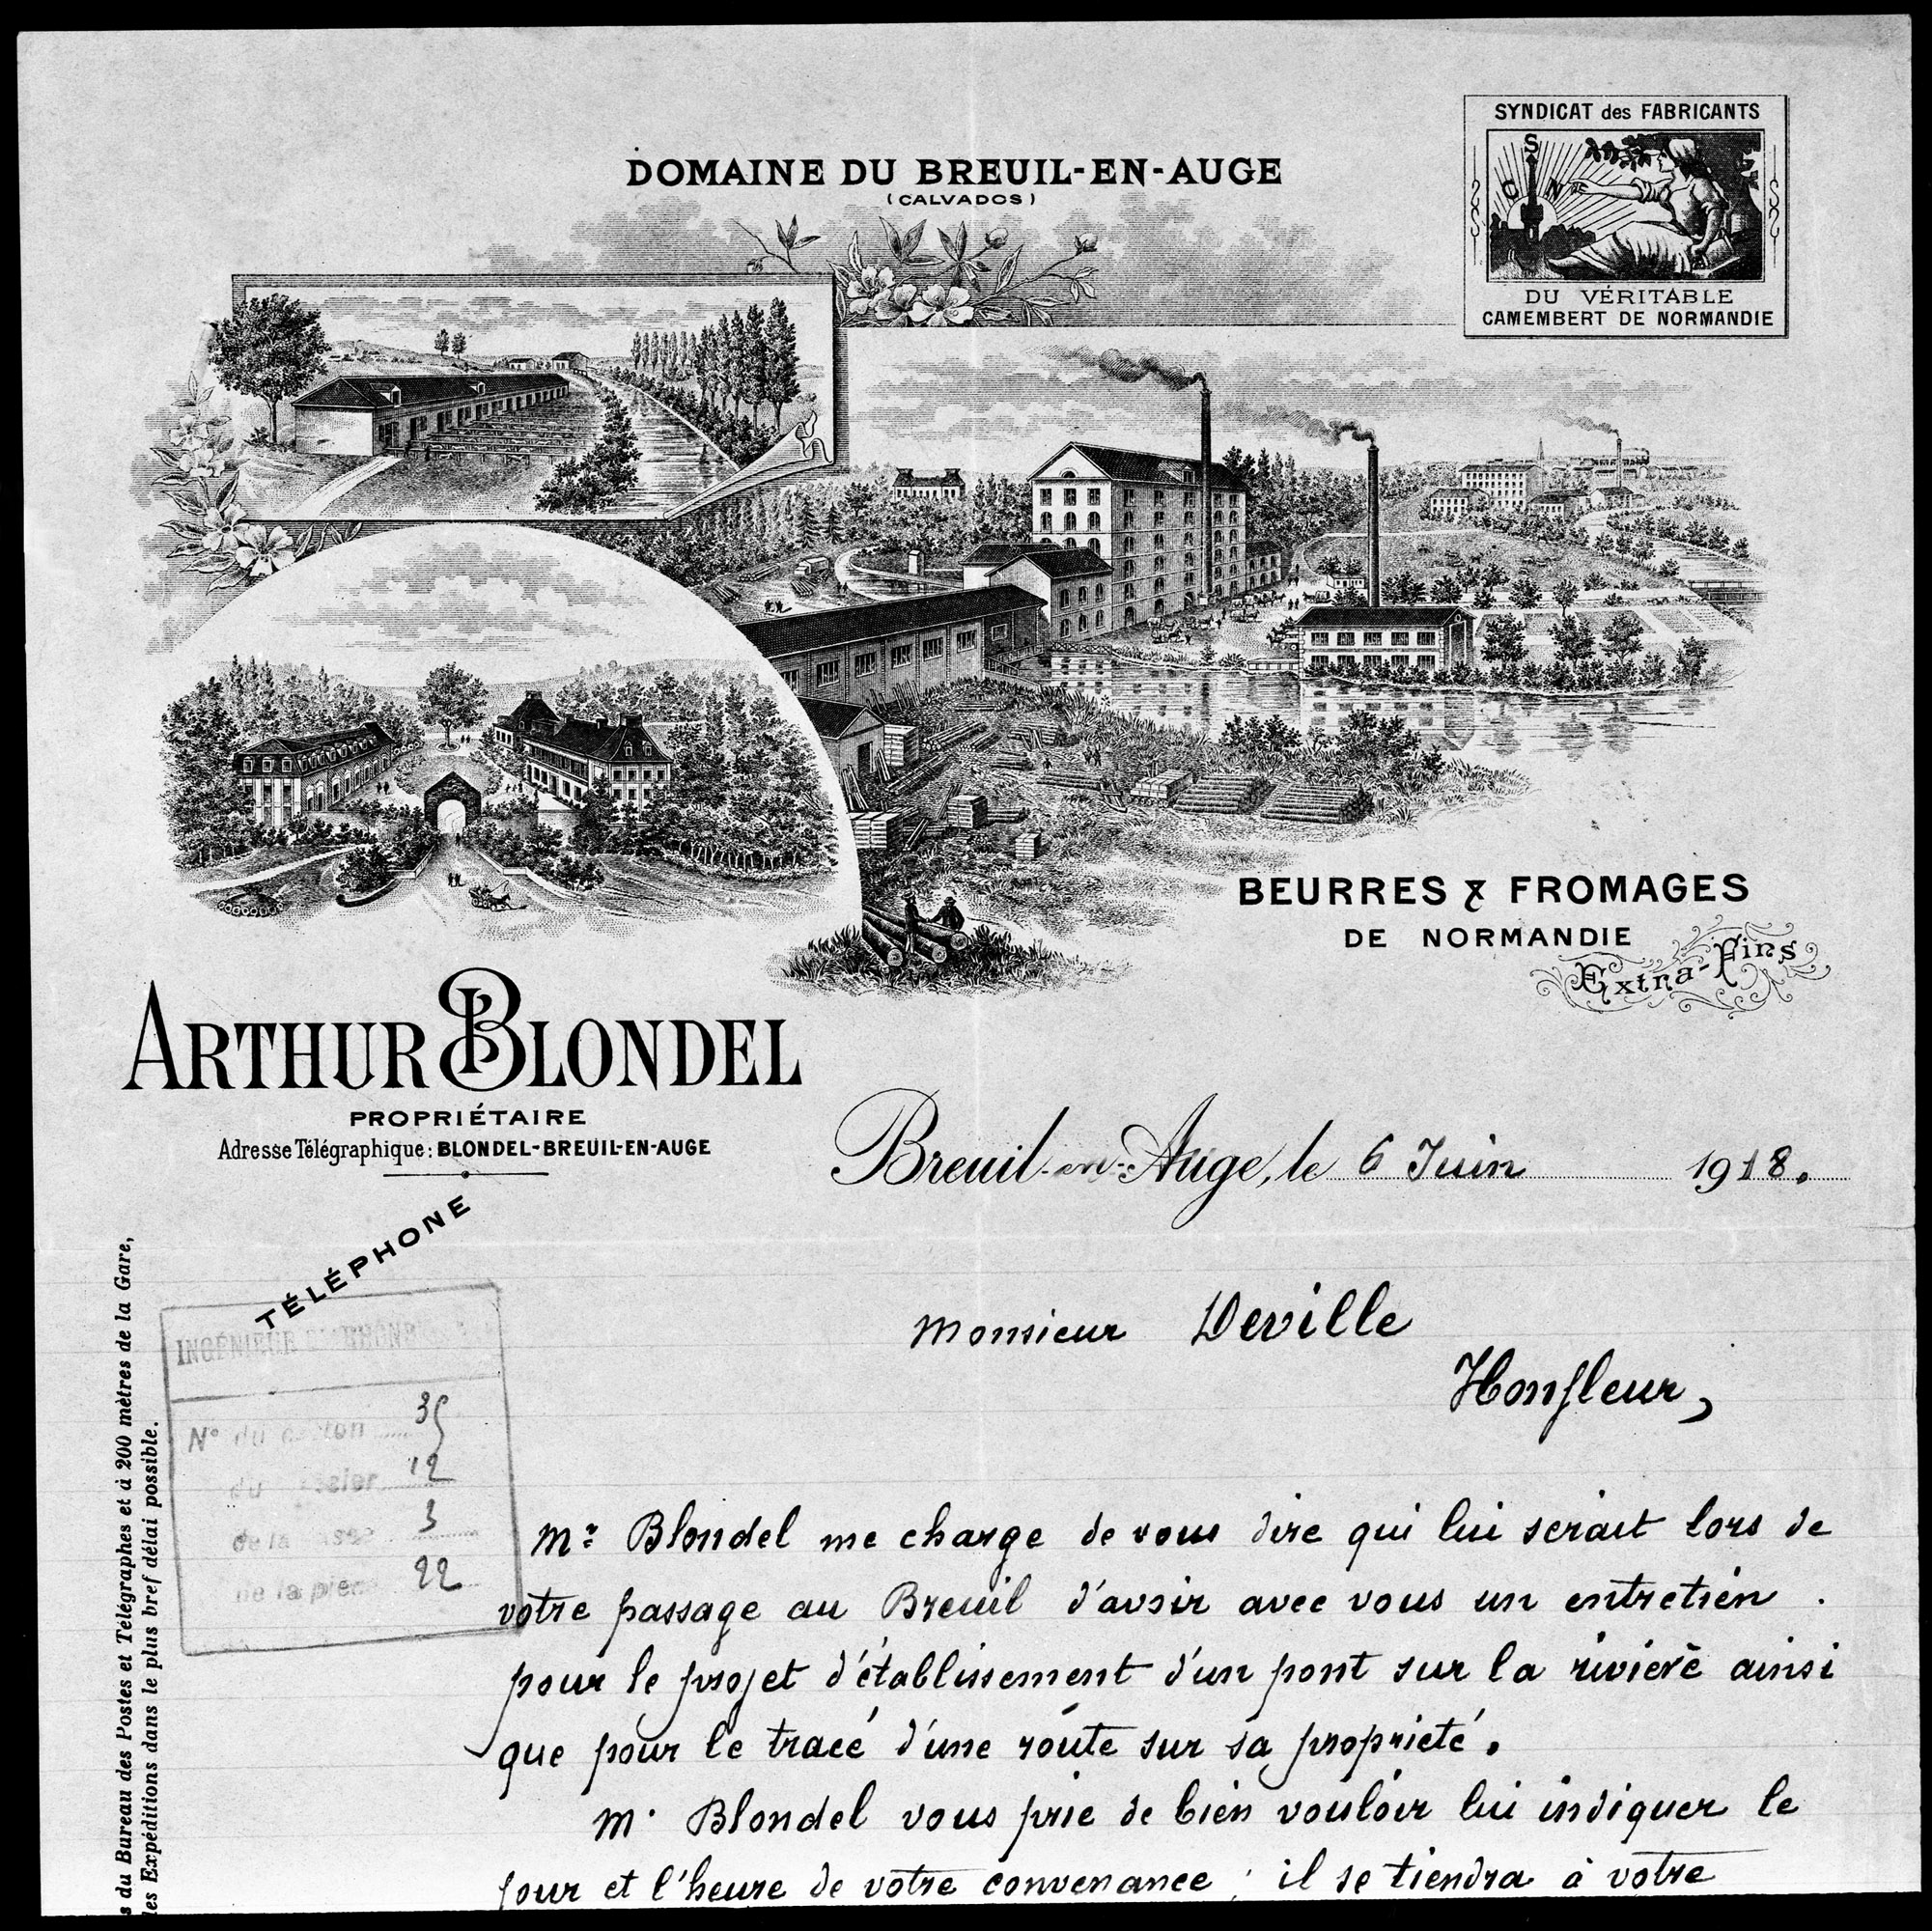 SYNDICAT des FABRICANTS
S
C N
DU VÉRITABLE
CAMEMBERT DE NORMANDIE
DOMAINE DU BREUIL-EN-AUGE
(CALVADOS)
BEURRES & FROMAGES
DE NORMANDIE
Extra-Fins
ARTHUR BLONDEL
PROPRIÉTAIRE
Adresse Télégraphique: BLONDEL-BREUIL-EN-AUGE
Breuil-en-Auge, le 6 Juin 1918.
TÉLÉPHONE
INGÉNIEUR
N° du 35
du 12
de la 3
de la 22
du Bureau des Postes et Télégraphes et à 200 mètres de la Gare,
les Expéditions dans le plus bref délai possible.
Monsieur Deville
Honfleur,
Mr Blondel me charge de vous dire qui lui serait lors de
votre passage au Breuil d'avoir avec vous un entretien.
pour le projet d'établissement d'un pont sur la rivierè ainsi
que pour le tracé d'une route sur sa proprieté.
M. Blondel vous prie de bien vouloir lui indiquer le
jour et l'heure de votre convenance ; il se tiendra à votre